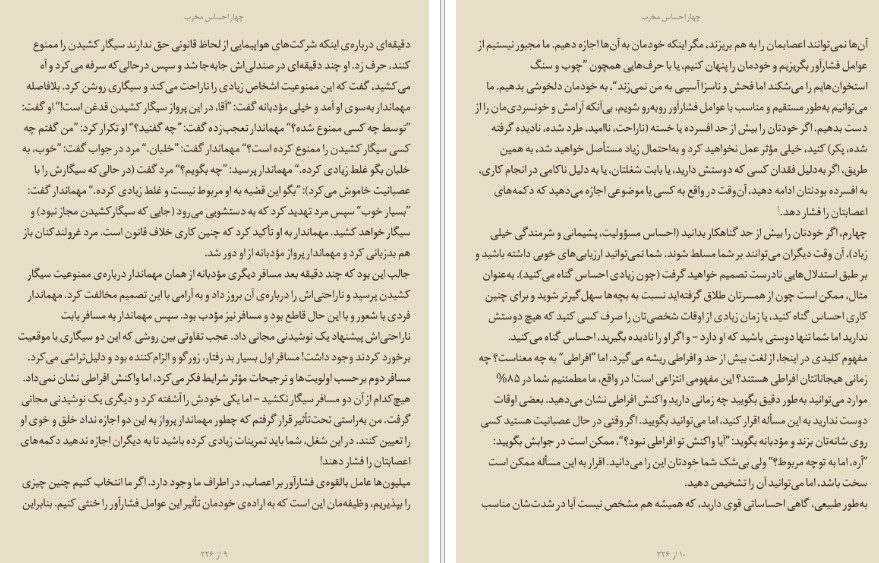 چهار احساس مخرب
دقیقه‌ای درباره‌ی اینکه شرکت‌های هواپیمایی از لحاظ قانونی حق ندارند سیگار کشیدن را ممنوع
کنند، حرف زد. او چند دقیقه‌ای در صندلی‌اش جابه‌جا شد و سپس درحالی‌که سرفه می‌کرد و آه
می‌کشید، گفت که این ممنوعیت اشخاص زیادی را ناراحت می‌کند و سیگاری روشن کرد. بلافاصله
مهماندار به‌سوی او آمد و خیلی مؤدبانه گفت: "آقا، در این پرواز سیگار کشیدن قدغن است!" او گفت:
"توسط چه کسی ممنوع شده؟" مهماندار تعجب‌زده گفت: "چه گفتید؟" او تکرار کرد: "من گفتم چه
کسی سیگار کشیدن را ممنوع کرده است؟" مهماندار گفت: "خلبان." مرد در جواب گفت: "خوب، به
خلبان بگو غلط زیادی کرده." مهماندار پرسید: "چه بگویم؟" مرد گفت (در حالی‌که سیگارش را با
عصبانیت خاموش می‌کرد): "بگو این قضیه به او مربوط نیست و غلط زیادی کرده." مهماندار گفت:
"بسیار خوب" سپس مرد تهدید کرد که به دستشویی می‌رود (جایی که سیگار کشیدن مجاز نبود) و
سیگار خواهد کشید. مهماندار به او تأکید کرد که چنین کاری خلاف قانون است. مرد غرولندکنان باز
هم بدزبانی کرد و مهماندار پرواز مؤدبانه از او دور شد.
جالب این بود که چند دقیقه بعد مسافر دیگری مؤدبانه از همان مهماندار درباره‌ی ممنوعیت سیگار
کشیدن پرسید و ناراحتی‌اش را درباره‌ی آن بروز داد و به آرامی با این تصمیم مخالفت کرد. مهماندار
فردی با شعور و با این حال قاطع بود و مسافر نیز مؤدب بود. سپس مهماندار به مسافر بابت
ناراحتی‌اش پیشنهاد یک نوشیدنی مجانی داد. عجب تفاوتی بین روشی که این دو سیگاری با موقعیت
برخورد کردند وجود داشت! مسافر اول بسیار بد رفتار، زورگو و الزام‌کننده بود و دلیل‌تراشی می‌کرد.
مسافر دوم بر حسب اولویت‌ها و ترجیحات مؤثر شرایط فکر می‌کرد، اما واکنش افراطی نشان نمی‌داد.
هیچ‌کدام از آن دو مسافر سیگار نکشید – اما یکی خودش را آشفته کرد و دیگری یک نوشیدنی مجانی
گرفت. من به‌راستی تحت‌تأثیر قرار گرفتم که چطور مهماندار پرواز به این دو اجازه نداد خلق و خوی او
را تعیین کنند. در این شغل، شما باید تمرینات زیادی کرده باشید تا به دیگران اجازه ندهید دکمه‌های
اعصابتان را فشار دهند!
میلیون‌ها عامل بالقوه‌ی فشارآور بر اعصاب، در اطراف ما وجود دارد. اگر ما انتخاب کنیم چنین چیزی
را بپذیریم، وظیفه‌مان این است که به اراده‌ی خودمان تأثیر این عوامل فشارآور را خنثی کنیم. بنابراین
۹ از ۲۲۶
چهار احساس مخرب
آن‌ها نمی‌توانند اعصابمان را به هم بریزند، مگر اینکه خودمان به آن‌ها اجازه دهیم. ما مجبور نیستیم از
عوامل فشارآور بگریزیم و خودمان را پنهان کنیم، یا با حرف‌هایی همچون "چوب و سنگ
استخوان‌هایم را می‌شکند اما فحش و ناسزا آسیبی به من نمی‌زند"، به خودمان دلخوشی بدهیم. ما
می‌توانیم به‌طور مستقیم و مناسب با عوامل فشارآور روبه‌رو شویم، بی‌آنکه آرامش و خونسردی‌مان را از
دست بدهیم. اگر خودتان را بیش از حد افسرده یا خسته (ناراحت، ناامید، طرد شده، نادیده گرفته
شده، پکر) کنید، خیلی مؤثر عمل نخواهید کرد و به‌احتمال زیاد مستأصل خواهید شد، به همین
طریق، اگر به‌دلیل فقدان کسی که دوستش دارید، یا بابت شغلتان، یا به دلیل ناکامی در انجام کاری،
به افسرده بودنتان ادامه دهید، آن‌وقت در واقع به کسی یا موضوعی اجازه می‌دهید که دکمه‌های
اعصابتان را فشار دهد.۱
چهارم، اگر خودتان را بیش از حد گناهکار بدانید (احساس مسؤولیت، پشیمانی و شرمندگی خیلی
زیاد)، آن وقت دیگران می‌توانند بر شما مسلط شوند. شما نمی‌توانید ارزیابی‌های خوبی داشته باشید و
بر طبق استدلال‌هایی نادرست تصمیم خواهید گرفت (چون زیادی احساس گناه می‌کنید). به‌عنوان
مثال، ممکن است چون از همسرتان طلاق گرفته‌اید نسبت به بچه‌ها سهل‌گیرتر شوید و برای چنین
کاری احساس گناه کنید، یا زمان زیادی از اوقات شخصی‌تان را صرف کسی کنید که هیچ دوستش
ندارید اما شما تنها دوستی باشید که او دارد – و اگر او را نادیده بگیرید، احساس گناه می‌کنید.
مفهوم کلیدی در اینجا، از لغت بیش از حد و افراطی ریشه می‌گیرد. اما "افراطی" به چه معناست؟ چه
زمانی هیجاناتتان افراطی هستند؟ این مفهومی انتزاعی است! در واقع، ما مطمئنیم شما در ۸۵%
موارد می‌توانید به‌طور دقیق بگویید چه زمانی دارید واکنش افراطی نشان می‌دهید. بعضی اوقات
دوست ندارید به این مسأله اقرار کنید، اما می‌توانید بگویید. اگر وقتی در حال عصبانیت هستید کسی
روی شانه‌تان بزند و مؤدبانه بگوید: "آیا واکنش تو افراطی نبود؟"، ممکن است در جوابش بگویید:
"آره، اما به تو چه مربوط؟" ولی بی‌شک شما خودتان این را می‌دانید. اقرار به این مسأله ممکن است
سخت باشد، اما می‌توانید آن را تشخیص دهید.
به‌طور طبیعی، گاهی احساساتی قوی دارید، که همیشه هم مشخص نیست آیا در شدت‌شان مناسب
۱۰ از ۲۲۶